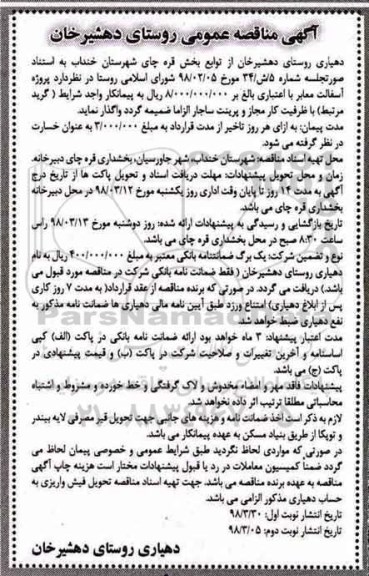 آگهی مناقصه عمومی روستای دهشیرخان
دهیاری روستای دهشیرخان از توابع بخش قره چای شهرستان خنداب به استناد
صورتجلسه شماره ۵/ش/۳۴ مورخ ۹۸/۰۲/۰۵ شورای اسلامی روستا در نظردارد پروژه
آسفالت معابر با اعتباری بالغ بر ۸/۰۰۰/۰۰۰/۰۰۰ ریال به پیمانکار واجد شرایط ( گرید
مرتبط) با ظرفیت کار مجاز و پرینت ساجار الزاما ضمیمه گردد واگذار نماید.
مدت پیمان: به ازای هر روز تاخیر از مدت قرارداد به مبلغ ۳/۰۰۰/۰۰۰ به عنوان خسارت
در نظر گرفته می شود.
محل تهیه اسناد مناقصه: شهرستان خنداب، شهر جاورسیان، بخشداری قره چای دبیرخانه.
زمان و محل تحویل پیشنهادات: مهلت دریافت اسناد و تحویل پاکت ها از تاریخ درج
آگهی به مدت ۱۴ روز تا پایان وقت اداری روز یکشنبه مورخ ۹۸/۰۳/۱۲ در محل دبیرخانه
بخشداری قره چای می باشد.
تاریخ بازگشایی و رسیدگی به پیشنهادات ارائه شده: روز دوشنبه مورخ ۹۸/۰۳/۱۳ راس
ساعت ۸:۳۰ صبح در محل بخشداری قره چای می باشد.
نوع و تضمین شرکت: یک برگ ضمانتنامه بانکی معتبر به مبلغ ۴۰۰/۰۰۰/۰۰۰ ریال به نام
دهیاری روستای دهشیرخان ( فقط ضمانت نامه بانکی شرکت در مناقصه مورد قبول می
باشد.) دریافت می گردد. در صورتی که برنده مناقصه از عقد قرارداد( به مدت ۷ روز کاری
پس از ابلاغ دهیاری) امتناع ورزد طبق آیین نامه مالی دهیاری ها ضمانت نامه مذکور به
نفع دهیاری ضبط خواهد شد.
مدت اعتبار پیشنهاد: ۳ ماه خواهد بود ارائه ضمانت نامه بانکی در پاکت (الف) کپی
اساسنامه و آخرین تغییرات و صلاحیت شرکت در پاکت (ب) و قیمت پیشنهادی در
پاکت (ج) می باشد.
پیشنهادات فاقد مهر و امضاء مخدوش و لاک گرفتگی و خط خورده و مشروط و اشتباه
محاسباتی مطلقا ترتیب اثر داده نخواهد شد.
لازم به ذکر است اخذ ضمانت نامه و هزینه های جانبی جهت تحویل قیر مصرفی لایه بیندر
و توپکا از طریق بنیاد مسکن به عهده پیمانکار می باشد.
در صورتی که مواردی لحاظ نگردید طبق شرایط عمومی و خصوصی پیمان لحاظ می
گردد ضمنا کمیسیون معاملات در رد یا قبول پیشنهادات مختار است هزینه چاپ آگهی
مناقصه به عهده برنده مناقصه می باشد. جهت تهیه اسناد مناقصه تحویل فیش واریزی به
حساب دهیاری مذکور الزامی می باشد.
تاریخ انتشار نوبت اول: ۹۸/۳/۳۰
تاریخ انتشار نوبت دوم: ۹۸/۳/۰۵
دهیاری روستای دهشیرخان